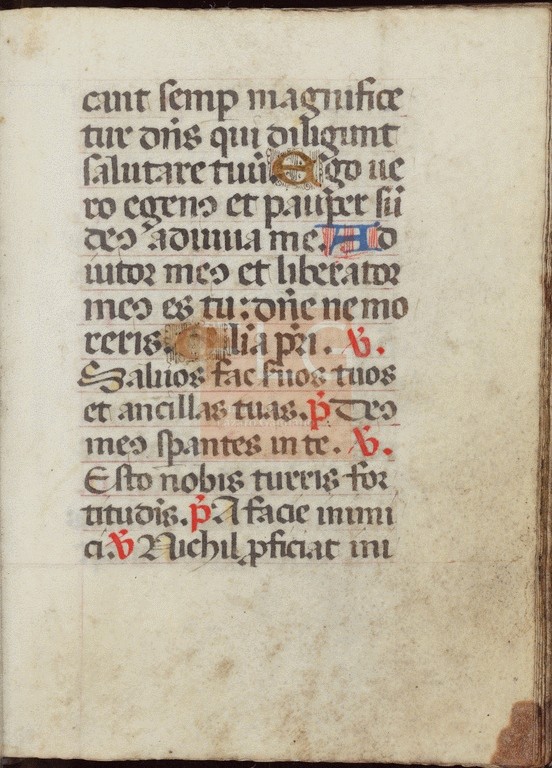 cant semp magnifice
tur dñs qui diligunt
salutare tuũ. Ego ue
ro egenꝯ et paup̱er sũ
deꝯ adiuua me. Ad
iutor meꝯ et liberator
meꝯ es tu: dñe ne mo
reris. Glia pri. ℣.
Saluos fac suos tuos
et ancillas tuas. ꝶ Deꝯ
meꝯ spantes in te. ℣.
Esto nobis turris for
titudis. ꝶ A facie inimi
ci. ℣ Nichil ꝓficiat ini